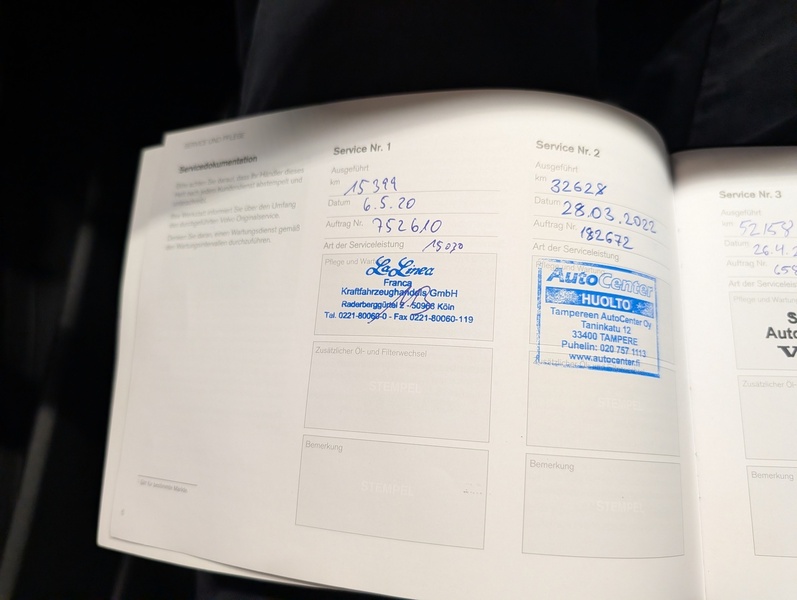 SERVICE UND PFLEGE
Servicedokumentation
Service Nr. 1
Ausgeführt
km 15399
Datum 6.5.20
Auftrag Nr. 752610
Art der Serviceleistung
Pflege und Wartung
La Linea
Franca
Kraftfahrzeughandels GmbH
Raderberggürtel 2 - 50968 Köln
Tel. 0221-80060-0 - Fax 0221-80060-119
Zusätzlicher Öl- und Filterwechsel
STEMPEL
Bemerkung
STEMPEL
Service Nr. 2
Ausgeführt
km 32628
Datum 28.03.2022
Auftrag Nr. 182672
Art der Serviceleistung
Pflege und Wartung
AutoCenter
HUOLTO
Tampereen AutoCenter Oy
Taninkatu 12
33400 TAMPERE
Puhelin: 020 757 1113
www.autocenter.fi
STEMPEL
Bemerkung
STEMPEL
Service Nr. 3
Ausgeführt
km 52158
Datum 26.4.2
Auftrag Nr. 658
Art der Serviceleis
Pflege und Wartung
S
Auto
V
Zusätzlicher Öl-
Bemerkung